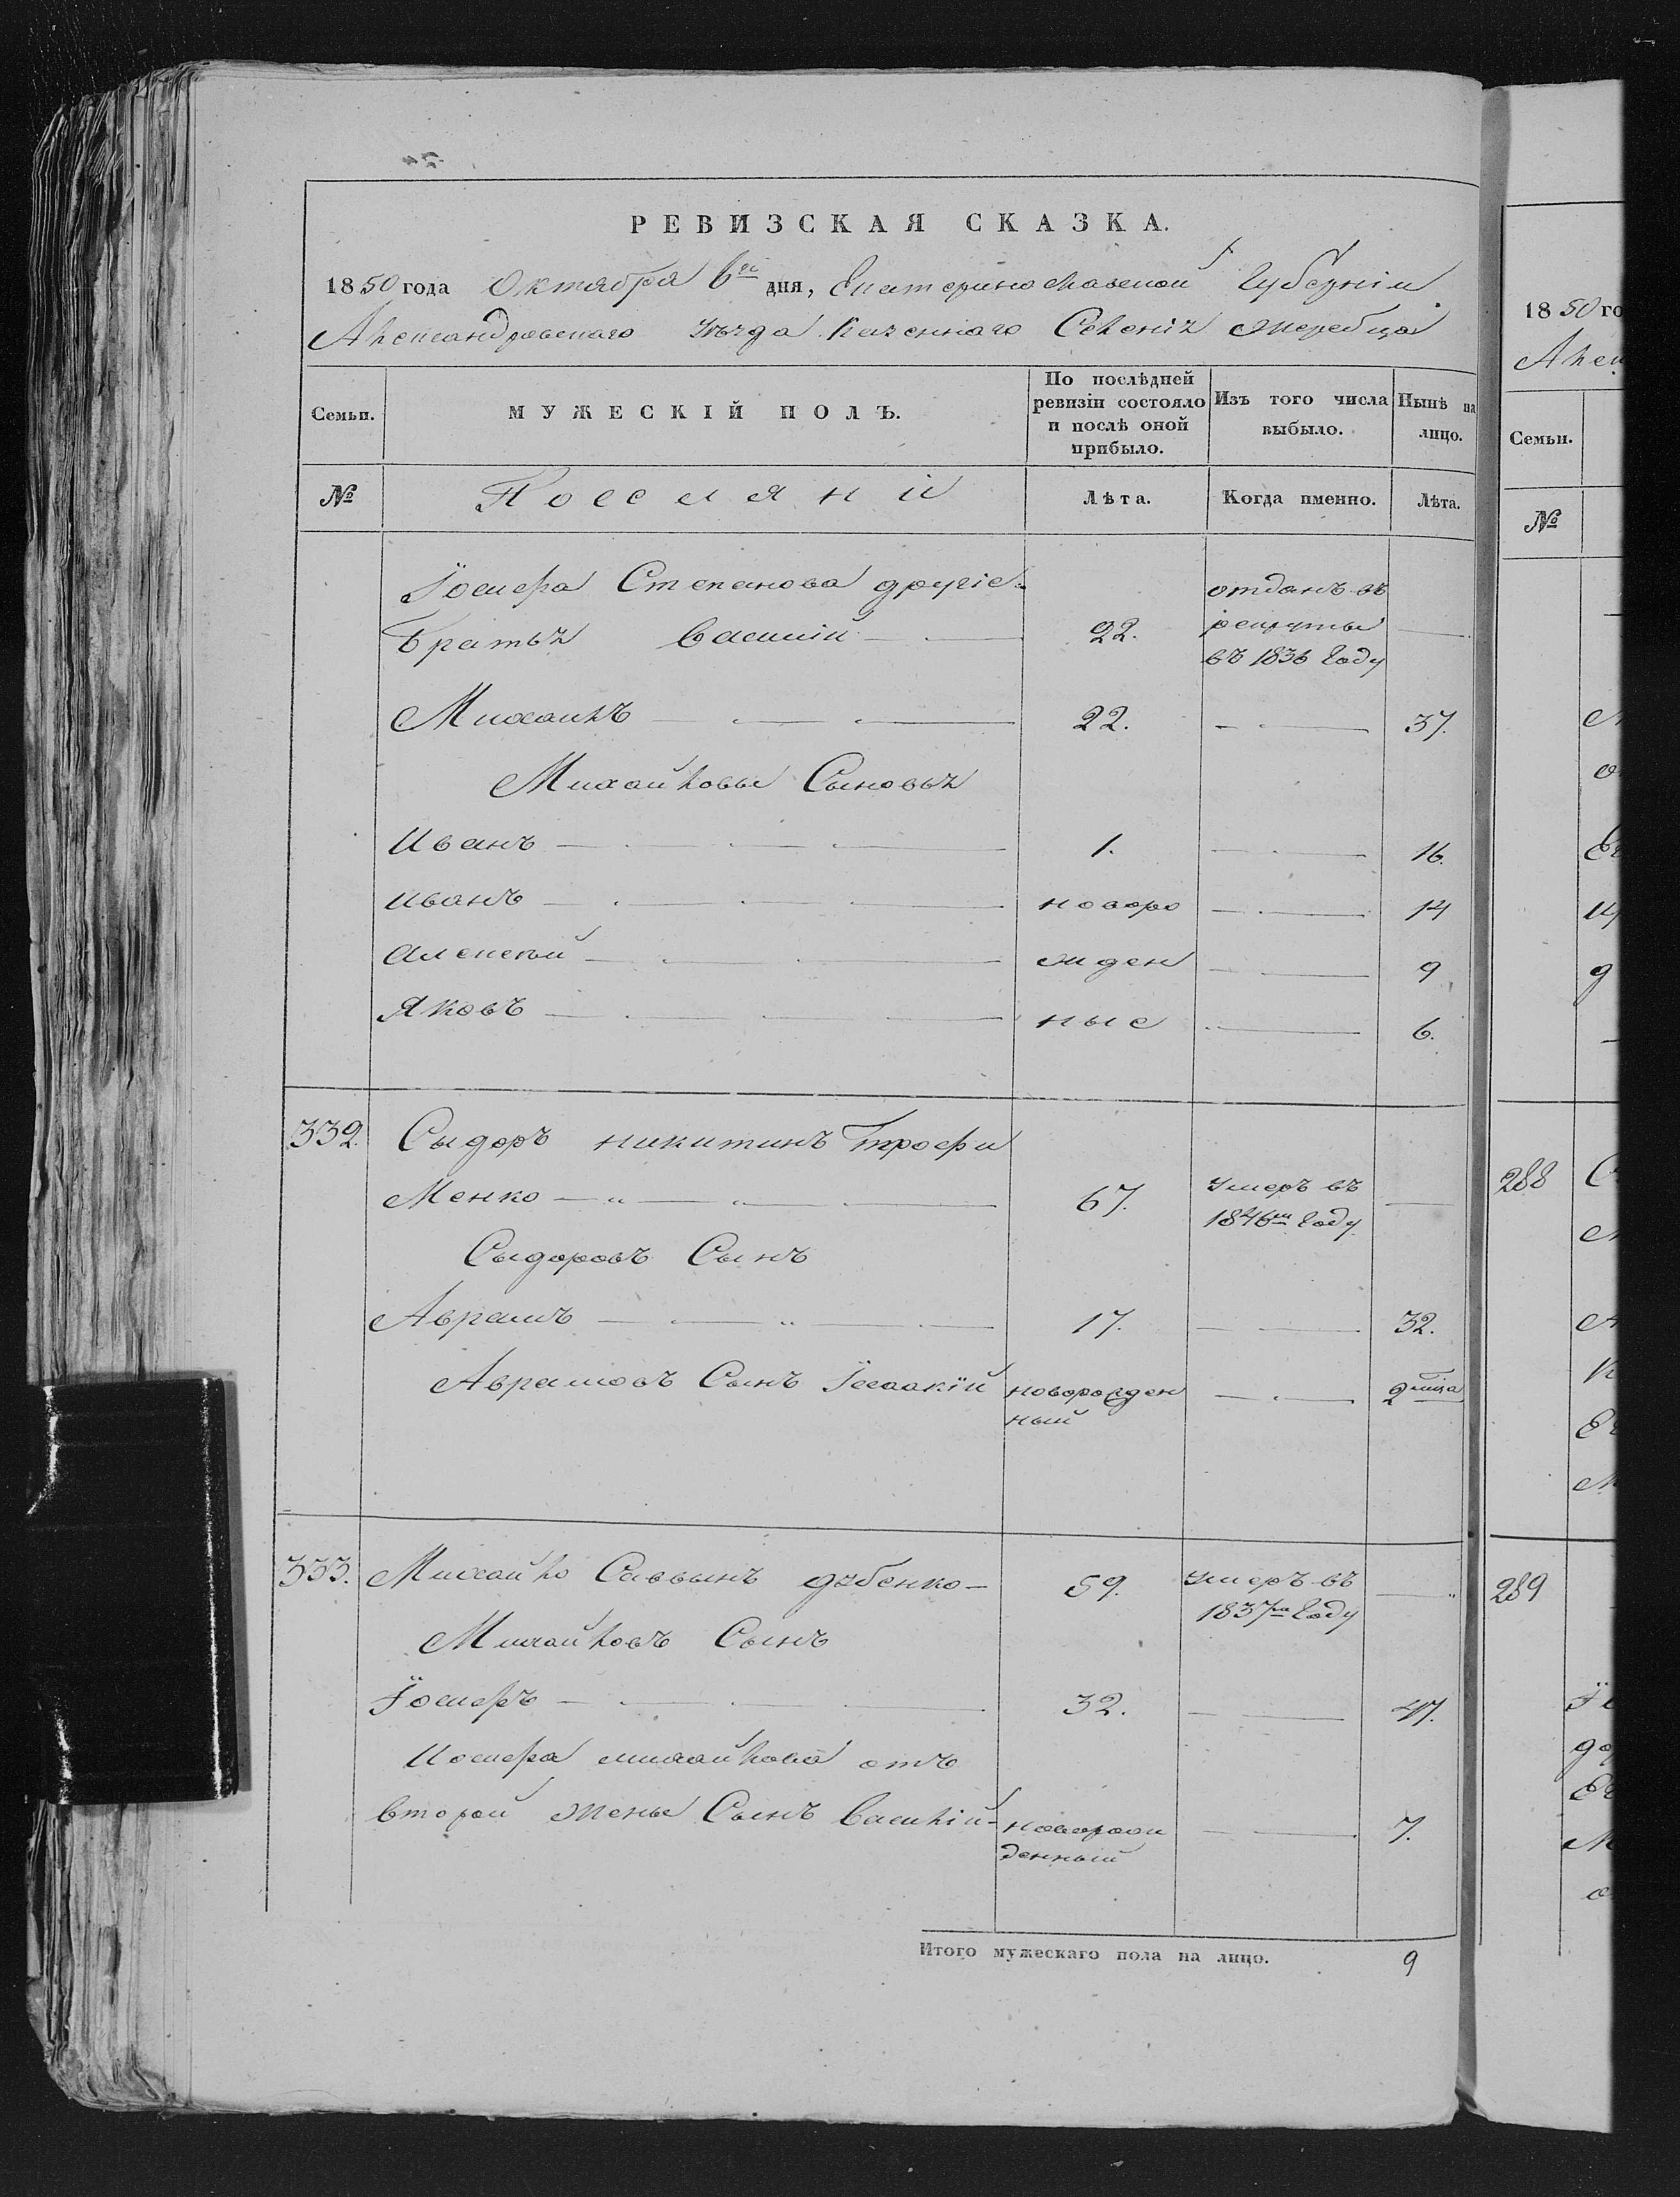 РЕВИЗСКАЯ СКАЗКА.
1850 года Октября 6го дня, Екатеринославской Губерніи
Александровскаго уѣзда Казеннаго Селенія Жеребца
Семьи. МУЖЕСКІЙ ПОЛЪ. По послѣдней ревизіи состояло и послѣ оной прибыло. Изъ того числа выбыло. Нынѣ на лицо.
№ Поселяни Лѣта. Когда именно. Лѣта.
Іосифа Степанова другіе отданъ въ
Братья Василій 22. рекруты
въ 1836 Году
Михаилъ 22. 37.
Михайловы Сыновья
Иванъ 1. 16.
Иванъ новоро 14
Алексѣй жден 9
Яковъ ные 6.
332. Сыдоръ Никитинъ Трофи
Менко 67. умеръ въ
1846м Году
Сыдоровъ Сынъ
Аврамъ 17. 32.
Аврамовъ Сынъ Ісаакій новорожден 2 мца
ный
333. Михайло Саввынъ дубенко 59. умеръ въ
1837м Году
Михайловъ Сынъ
Іосифъ 32. 47.
Иосифа михайлова отъ
второй жены Сынъ Василій новорож 7.
денный
Итого мужескаго пола на лицо. 9
1850 го
Алек
Семьи.
№
288
289